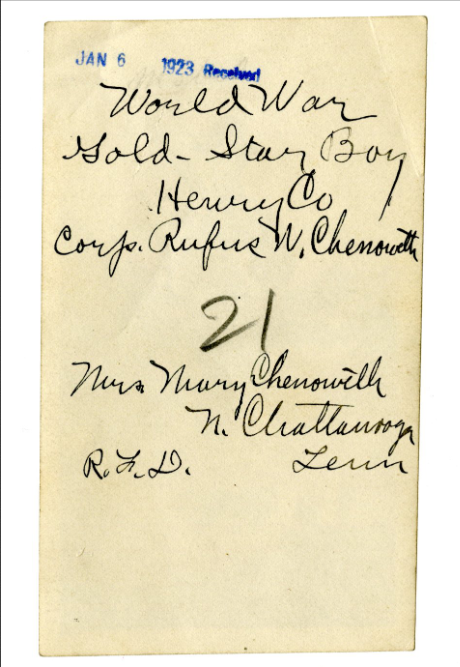 JAN 6 1923 Received
World War
Gold - Star Boy
Henry Co
Corp. Rufus W. Chenoweth
21
Mrs. Mary Chenowith
N. Chattanooga
R.F.D. Tenn